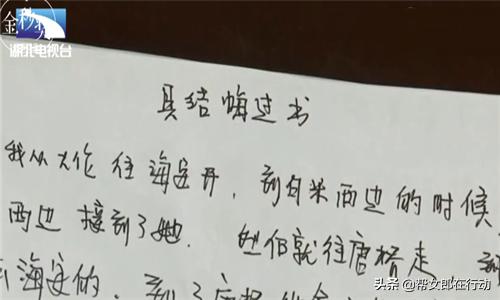 湖北电视台
具结悔过书
我从大作往海安开，到自米西边的时候
西边 接到了她. 他们就往唐桥走 到
海安的，到了唐桥
头条 @帮女郎在行动